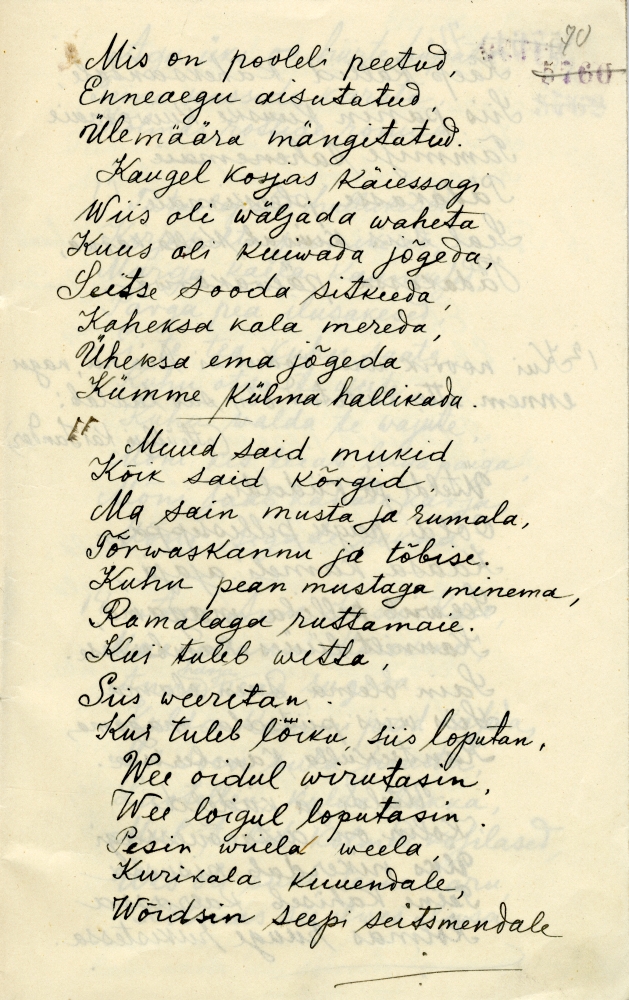 70
5760
Mis on pooleli peetud,
Enneaegu aisutatud,
Ülemäära mängitatud.
Kaugel kosjas käiessagi
Wiis oli wäljada waheta
Kuus oli kuiwada jõgeda,
Seitse sooda sitkeeda,
Kaheksa kala mereda,
Üheksa ema jõgeda
Kümme külma hallikada.
11
Muud said mukid
Kõik said kõrgid,
Ma sain musta ja rumala,
Tõrwaskannu ja tõbise.
Kuhu pean mustaga minema,
Ramalaga ruttamaie.
Kui tuleb wetta,
Siis weeretan.
Kui tuleb lõiku, siis loputan,
Wee oidul wirutasin,
Wee loigul loputasin.
Pesin wiiela weela,
Kurikala kuuendale,
Wõidsin seepi seitsmendale